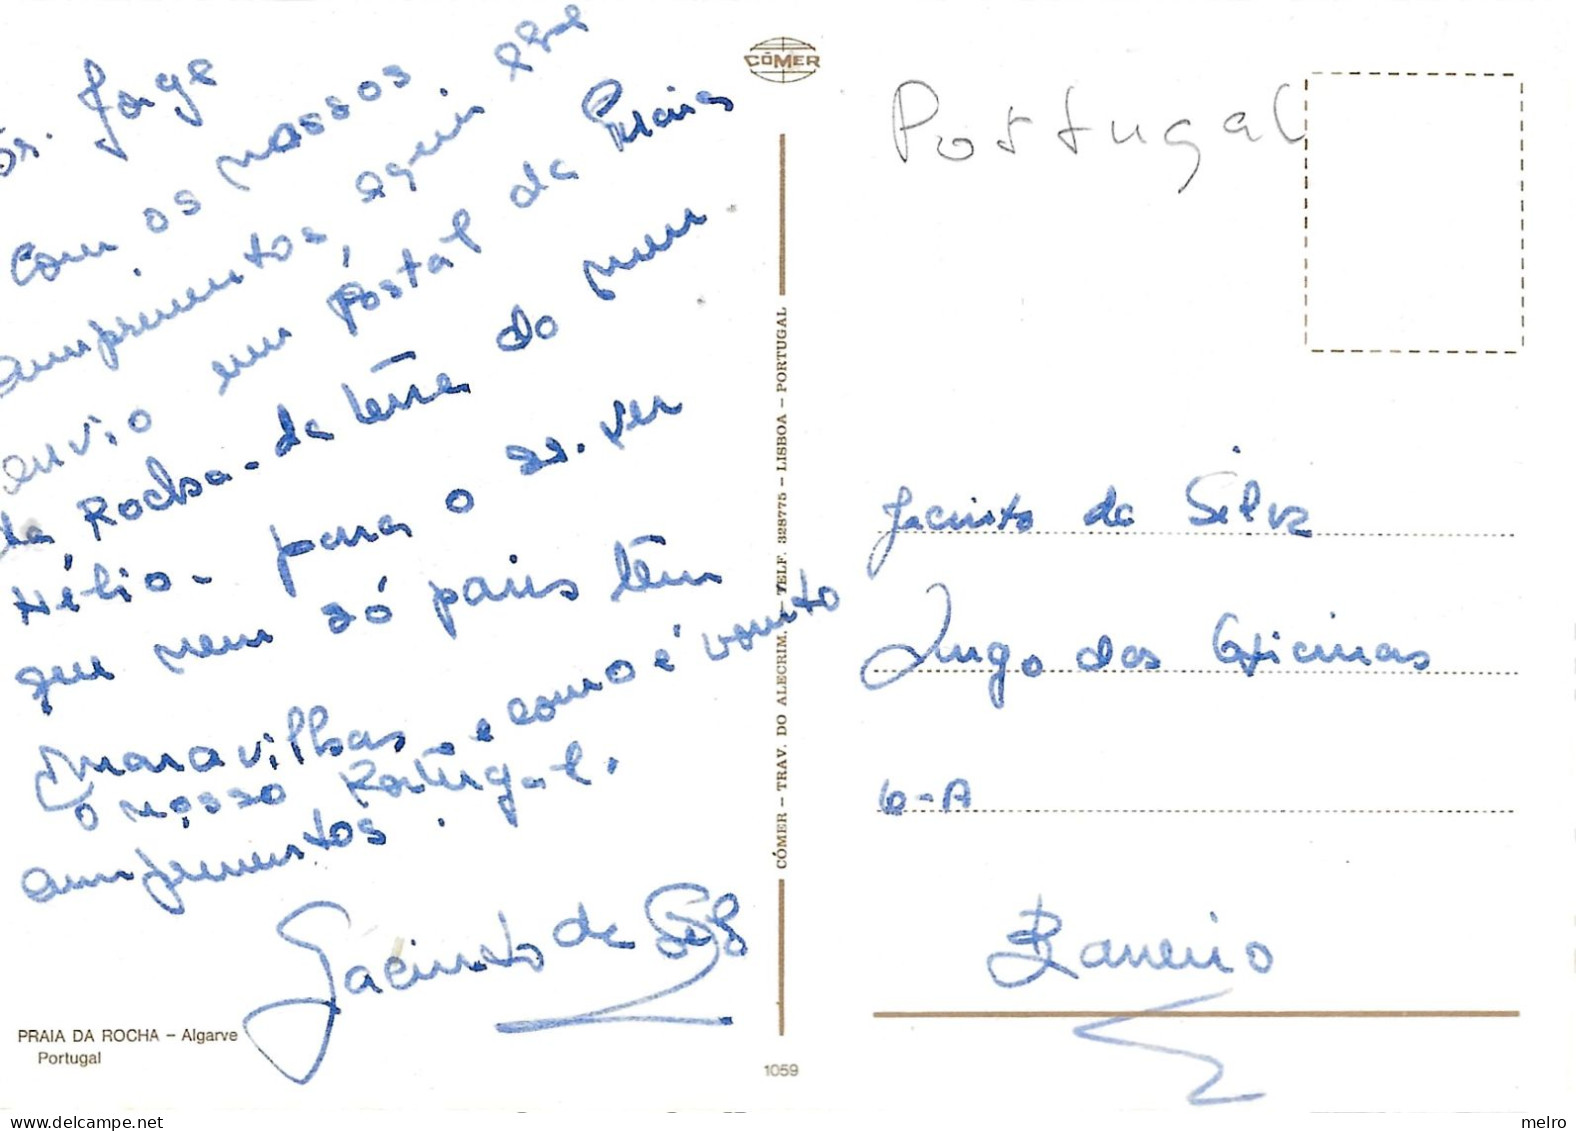 Sr. Jorge
Com os nossos
cumprimentos, aqui lhe
envio um postal da Praia
da Rocha - da terra do num
Hélio - para o sr. ver
que nem só paris têm
maravilhas - e como é bonito
o nosso Portugal.
cumprimentos.
Jacinto da Silva
PRAIA DA ROCHA – Algarve
Portugal
CÓMER
CÓMER – TRAV. DO ALECRIM, – TELF. 328775 – LISBOA – PORTUGAL
1059
Portugal
Jacinto da Silva
Largo das Oficinas
6-A
Barreiro
melro